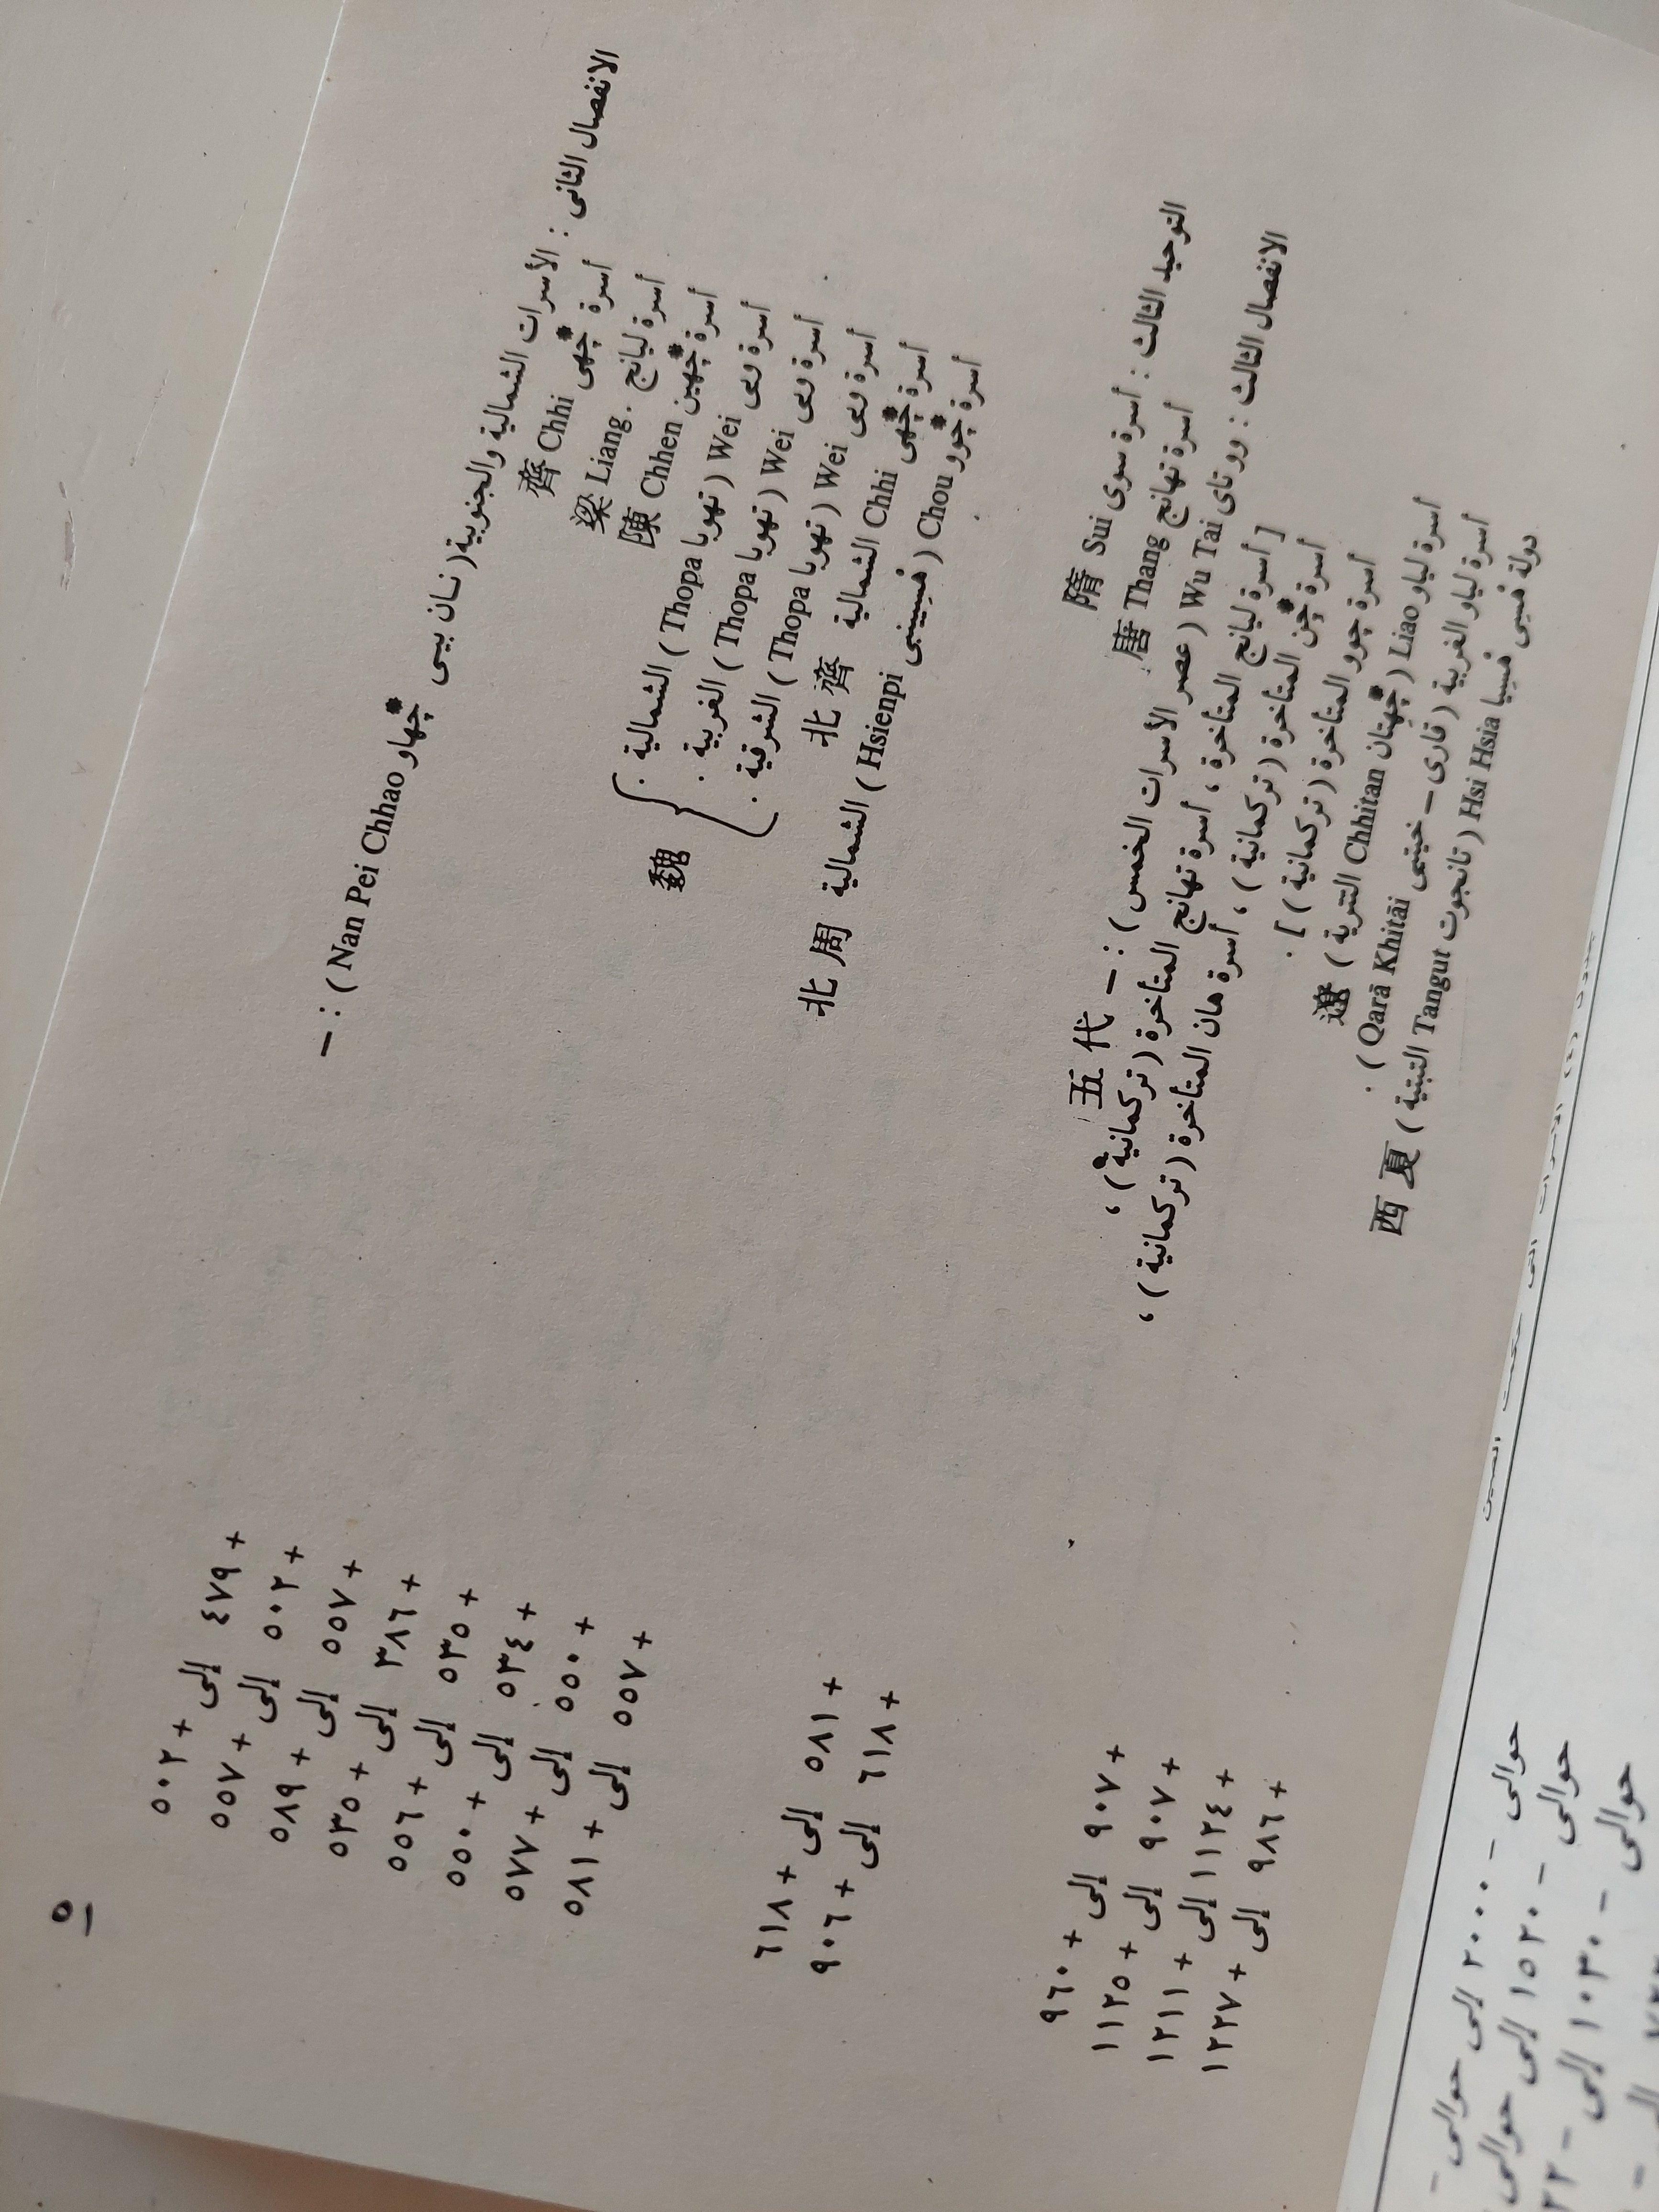 ٥١
الانفصال الثانى : الأسرات الشمالية والجنوبية ( نـان بيـى چهاو Nan Pei Chhao ) : —
أسرة چهى Chhi 齊 + ٤٧٩ إلى + ٥٠٢
أسرة ليانج Liang. 梁 + ٥٠٢ إلى + ٥٥٧
أسرة چهين Chhen 陳 + ٥٥٧ إلى + ٥٨٩
أسرة وى Wei ( تهوبا Thopa ) الشمالية . + ٣٨٦ إلى + ٥٣٥
أسرة وى Wei ( تهوبا Thopa ) الغربية . 魏 + ٥٣٥ إلى + ٥٥٦
أسرة وى Wei ( تهوبا Thopa ) الشرقية . + ٥٣٤ إلى + ٥٥٠
أسرة چهى Chhi الشمالية 北齊 + ٥٥٠ إلى + ٥٧٧
أسرة چوو Chou ( Hsienpi ) الشمالية 北周 + ٥٥٧ إلى + ٥٨١
التوحيد الثالث : أسرة سوى Sui 隋 + ٥٨١ إلى + ٦١٨
أسرة تهانج Thang 唐 + ٦١٨ إلى + ٩٠٦
الانفصال الثالث : وو تاى Wu Tai ( عصر الأسرات الخمس ) : — 五代 + ٩٠٧ إلى + ٩٦٠
[ أسرة ليانج المتأخرة ، أسرة تهانج المتأخرة ( تركمانية ) ،
أسرة چن المتأخرة ( تركمانية ) ، أسرة هان المتأخرة ( تركمانية ) ،
أسرة چوو المتأخرة ( تركمانية ) ] .
أسرة لياو Liao ( چهيتان Chhitan التترية ) 遼 + ٩٠٧ إلى + ١١٢٥
أسرة لياو الغربية ( قارى – خيتى Qarā Khitāi ) . + ١١٢٤ إلى + ١٢١١
دولة Hsi Hsia ( تانجوت Tangut التبتية ) 西夏 + ٩٨٦ إلى + ١٢٢٧
الأسرات التى حكمت الصين
حوالى - ٢٠٠٠ إلى حوالى -
حوالى - ١٥٢٠ إلى حوالى
حوالى - ١٠٣٠ إلى -